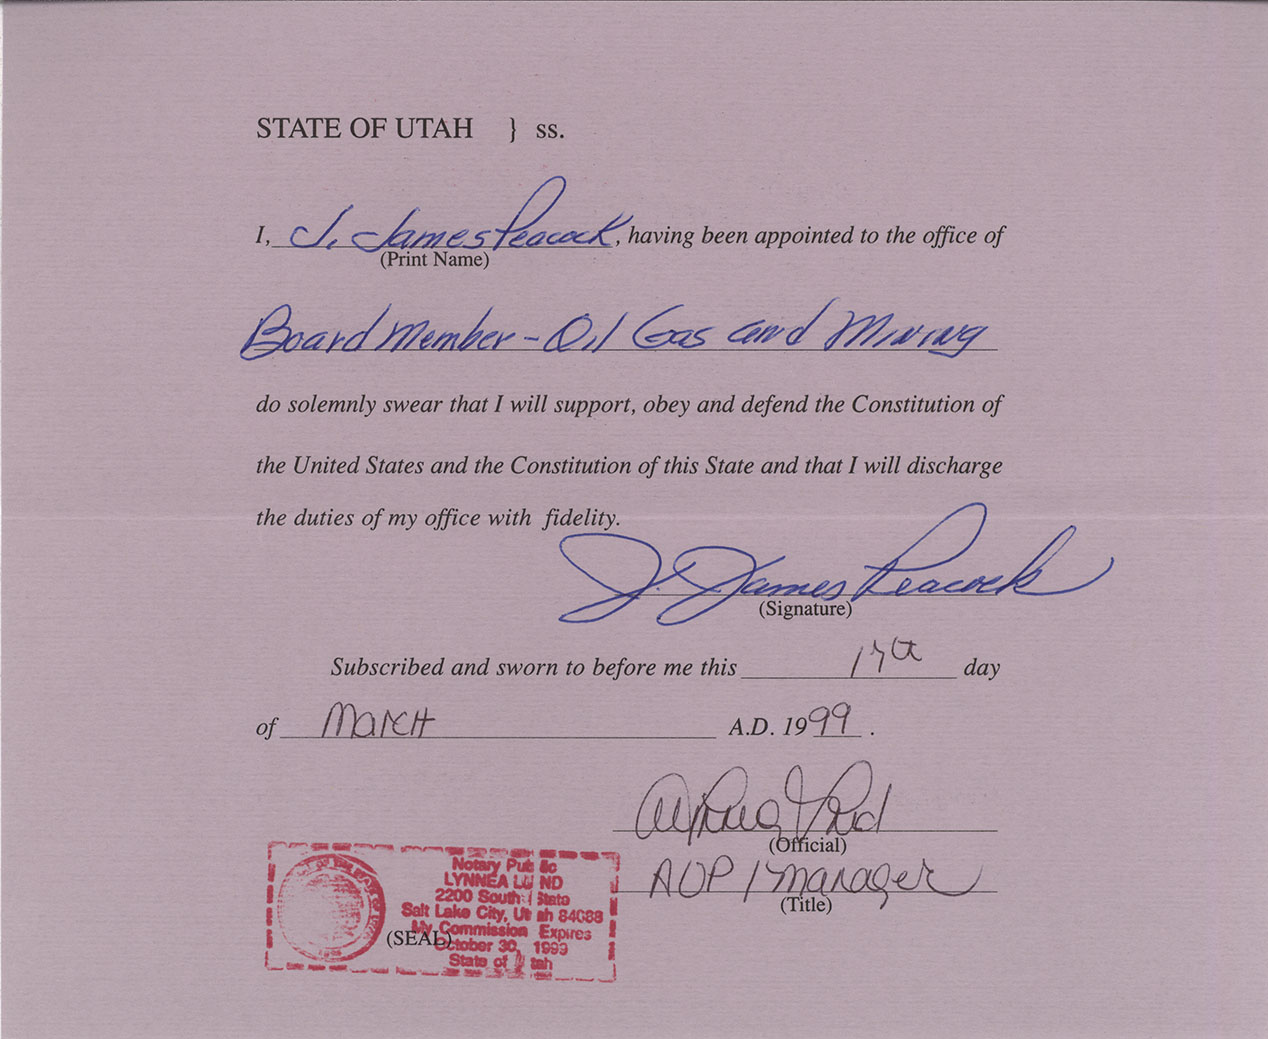 STATE OF UTAH } ss.
I, J. James Peacock, having been appointed to the office of
(Print Name)
Board Member - Oil Gas and Mining
do solemnly swear that I will support, obey and defend the Constitution of
the United States and the Constitution of this State and that I will discharge
the duties of my office with fidelity.
J. James Peacock
(Signature)
Subscribed and sworn to before me this 17th day
of March A.D. 1999.
(Official)
AVP / Manager
(Title)
Notary Public
LYNNEA LUND
2200 South State
Salt Lake City, Utah 84088
My Commission Expires
(SEAL) October 30, 1999
State of Utah